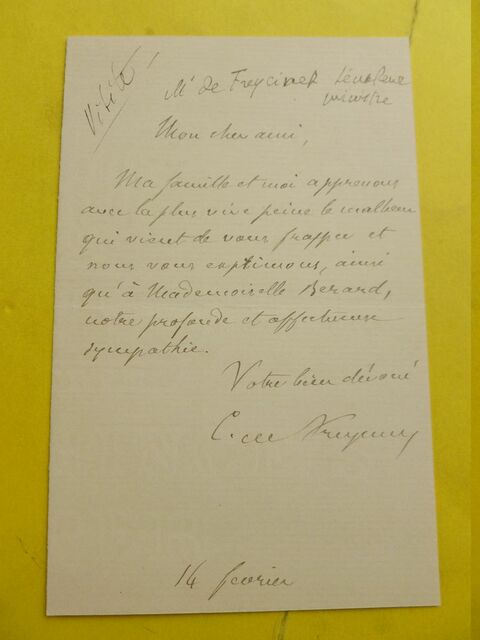 Visité
Mr de Freycinet Sénateur
ministre
Mon cher ami,
Ma famille et moi apprenons
avec la plus vive peine le malheur
qui vient de vous frapper et
nous vous exprimons, ainsi
qu'à Mademoiselle Berard,
notre profonde et affectueuse
sympathie.
Votre bien dévoué
C. de Freycinet
14 février